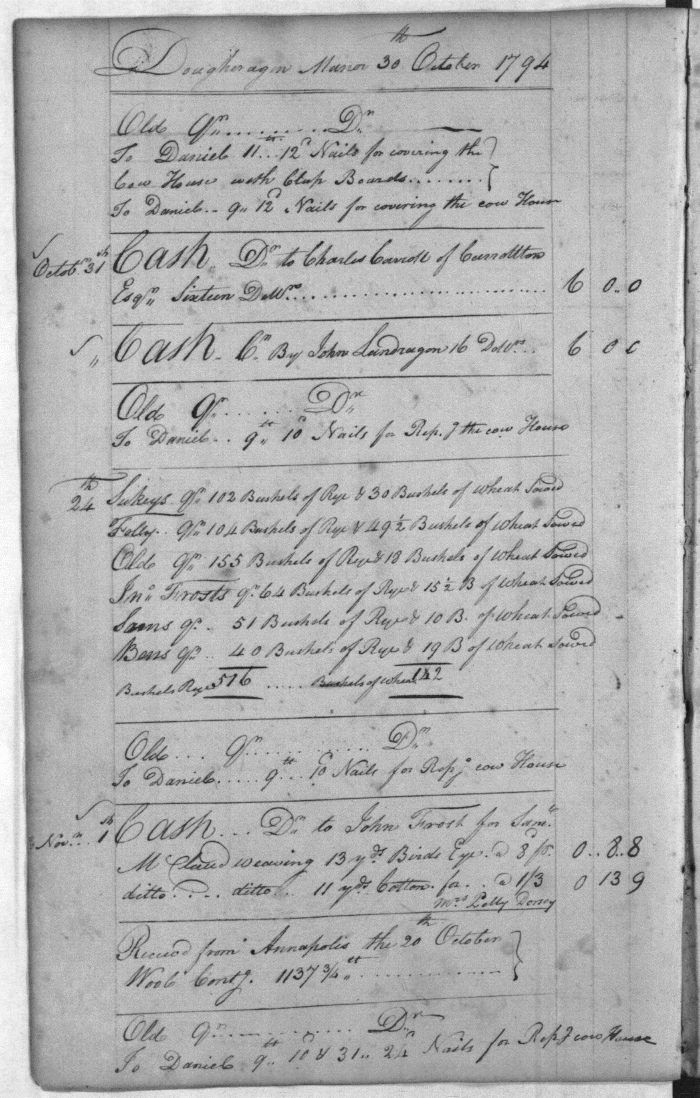 Dougheragen Manor 30th October 1794
Old Qr ............ Dr
To Daniel 11lb .. 12d Nails for covering the
Cow House with Clap Boards ........
To Daniel .. 9lb 12d Nails for covering the cow House
Octobr 31st Cash Dr to Charles Carroll of Carrollton
Esqr Sixteen Dollrs ............ 6 0..0
" Cash Cr By John Landragon 16 Dollrs .. 6 0 0
Old Qr ........ Dr
To Daniel .. 9lb 10d Nails for Repg the cow House
24th Sukeys Qr 102 Bushels of Rye & 30 Bushels of Wheat Sowed
Folly .. Qr 104 Bushels of Rye & 49½ Bushels of Wheat Sowed
Old Qr 155 Bushels of Rye & 18 Bushels of Wheat Sowed
Jno Frosts qr 64 Bushels of Rye & 15½ B of Wheat Sowed
Sams qr .. 51 Bushels of Rye & 10 B. of Wheat Sowed
Bens qr .. 40 Bushels of Rye & 19 B of Wheat Sowed
Bushels Rye 516 ..... Bushels of Wheat 142
Old ... Qr ............ Dr
To Daniel ..... 9lb ... 10d Nails for Repg cow House
Novr 1st Cash ... Dr to John Frost for Saml
Mc weaving 13 yds Birds Eye @ 8d pr 0..8..8
ditto ..... ditto .. 11 yds Cotton for .. @ 1/3 0 13 9
Mrs Polly Dorsey
Received from Annapolis the 20th October
Wool Contg. 1137¾lb ............
Old qr ............ Dr
To Daniel 9lb 10d & 31.. 24d Nails for Repg cow House